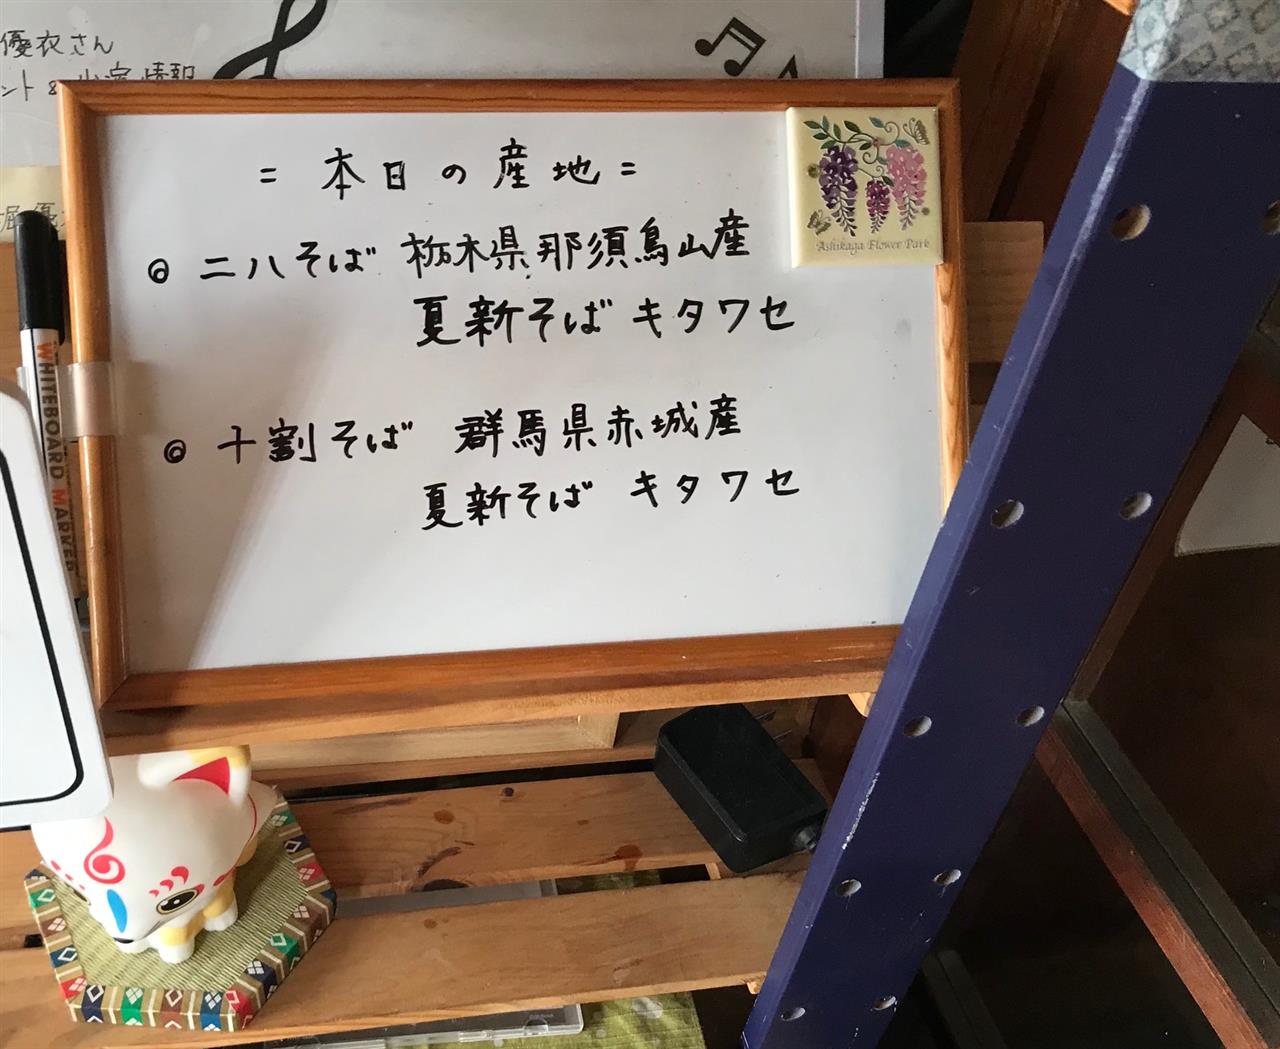 優衣さん
= 本日の産地 =
◎ 二八そば 栃木県那須烏山産
夏新そば キタワセ
◎ 十割そば 群馬県赤城産
夏新そば キタワセ
Ashikaga Flower Park
WHITEBOARD MARKER